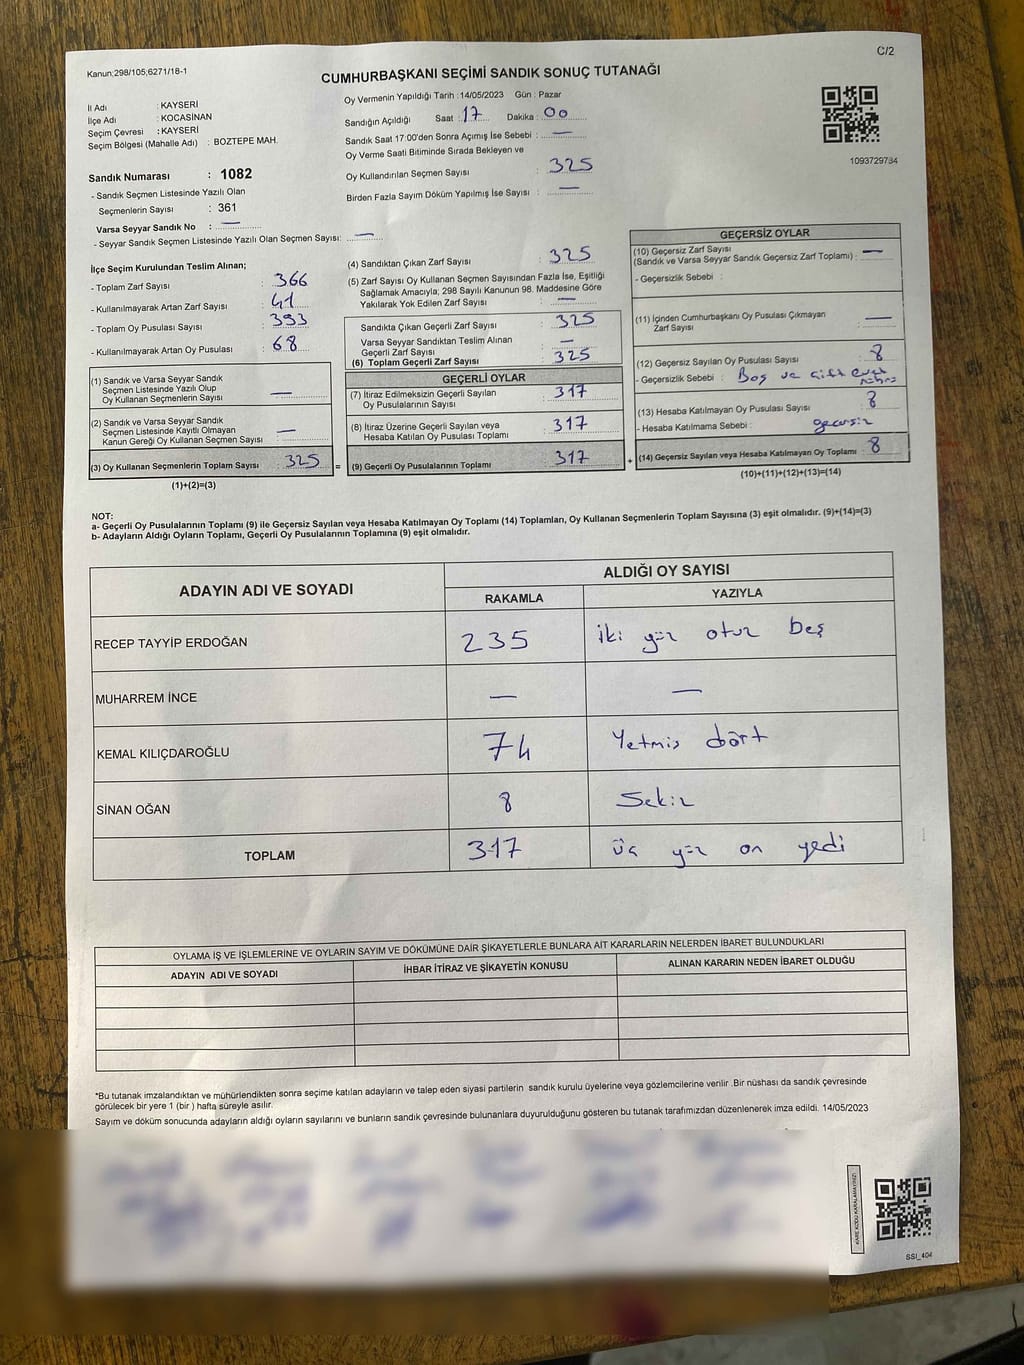 Kanun;298/105;6271/18-1
C/2
CUMHURBAŞKANI SEÇİMİ SANDIK SONUÇ TUTANAĞI
İl Adı : KAYSERİ
İlçe Adı : KOCASİNAN
Seçim Çevresi : KAYSERİ
Seçim Bölgesi (Mahalle Adı) : BOZTEPE MAH.
Sandık Numarası : 1082
- Sandık Seçmen Listesinde Yazılı Olan
Seçmenlerin Sayısı : 361
Varsa Seyyar Sandık No : —
- Seyyar Sandık Seçmen Listesinde Yazılı Olan Seçmen Sayısı: —
Oy Vermenin Yapıldığı Tarih :14/05/2023 Gün : Pazar
Sandığın Açıldığı Saat : 17 Dakika : 00
Sandık Saat 17:00'den Sonra Açımış İse Sebebi : —
Oy Verme Saati Bitiminde Sırada Bekleyen ve
Oy Kullandırılan Seçmen Sayısı : 325
Birden Fazla Sayım Döküm Yapılmış İse Sayısı : —
1093729784
İlçe Seçim Kurulundan Teslim Alınan;
- Toplam Zarf Sayısı : 366
- Kullanılmayarak Artan Zarf Sayısı : 41
- Toplam Oy Pusulası Sayısı : 393
- Kullanılmayarak Artan Oy Pusulası : 68
(1) Sandık ve Varsa Seyyar Sandık
Seçmen Listesinde Yazılı Olup
Oy Kullanan Seçmenlerin Sayısı : —
(2) Sandık ve Varsa Seyyar Sandık
Seçmen Listesinde Kayıtlı Olmayan
Kanun Gereği Oy Kullanan Seçmen Sayısı : —
(3) Oy Kullanan Seçmenlerin Toplam Sayısı : 325 =
(1)+(2)=(3)
(4) Sandıktan Çıkan Zarf Sayısı : 325
(5) Zarf Sayısı Oy Kullanan Seçmen Sayısından Fazla İse, Eşitliği
Sağlamak Amacıyla; 298 Sayılı Kanunun 98. Maddesine Göre
Yakılarak Yok Edilen Zarf Sayısı : —
Sandıkta Çıkan Geçerli Zarf Sayısı : 325
Varsa Seyyar Sandıktan Teslim Alınan
Geçerli Zarf Sayısı : —
(6) Toplam Geçerli Zarf Sayısı : 325
GEÇERLİ OYLAR
(7) İtiraz Edilmeksizin Geçerli Sayılan
Oy Pusulalarının Sayısı : 317
(8) İtiraz Üzerine Geçerli Sayılan veya
Hesaba Katılan Oy Pusulası Toplamı : 317
(9) Geçerli Oy Pusulalarının Toplamı : 317 +
GEÇERSİZ OYLAR
(10) Geçersiz Zarf Sayısı
(Sandık ve Varsa Seyyar Sandık Geçersiz Zarf Toplamı) : —
- Geçersizlik Sebebi :
(11) İçinden Cumhurbaşkanı Oy Pusulası Çıkmayan
Zarf Sayısı : —
(12) Geçersiz Sayılan Oy Pusulası Sayısı : 8
- Geçersizlik Sebebi : Boş ve çift evet
(13) Hesaba Katılmayan Oy Pusulası Sayısı : 8
- Hesaba Katılmama Sebebi : geçersiz
(14) Geçersiz Sayılan veya Hesaba Katılmayan Oy Toplamı : 8
(10)+(11)+(12)+(13)=(14)
NOT:
a- Geçerli Oy Pusulalarının Toplamı (9) ile Geçersiz Sayılan veya Hesaba Katılmayan Oy Toplamı (14) Toplamları, Oy Kullanan Seçmenlerin Toplam Sayısına (3) eşit olmalıdır. (9)+(14)=(3)
b- Adayların Aldığı Oyların Toplamı, Geçerli Oy Pusulalarının Toplamına (9) eşit olmalıdır.
ADAYIN ADI VE SOYADI
ALDIĞI OY SAYISI
RAKAMLA YAZIYLA
RECEP TAYYİP ERDOĞAN 235 iki yüz otuz beş
MUHARREM İNCE — —
KEMAL KILIÇDAROĞLU 74 Yetmiş dört
SİNAN OĞAN 8 Sekiz
TOPLAM 317 üç yüz on yedi
OYLAMA İŞ VE İŞLEMLERİNE VE OYLARIN SAYIM VE DÖKÜMÜNE DAİR ŞİKAYETLERLE BUNLARA AİT KARARLARIN NELERDEN İBARET BULUNDUKLARI
ADAYIN ADI VE SOYADI İHBAR İTİRAZ VE ŞİKAYETİN KONUSU ALINAN KARARIN NEDEN İBARET OLDUĞU
*Bu tutanak imzalandıktan ve mühürlendikten sonra seçime katılan adayların ve talep eden siyasi partilerin sandık kurulu üyelerine veya gözlemcilerine verilir .Bir nüshası da sandık çevresinde
görülecek bir yere 1 (bir ) hafta süreyle asılır.
Sayım ve döküm sonucunda adayların aldığı oyların sayılarını ve bunların sandık çevresinde bulunanlara duyurulduğunu gösteren bu tutanak tarafımızdan düzenlenerek imza edildi. 14/05/2023
KARE KODU KARALAMAYINIZ!
SSI_404